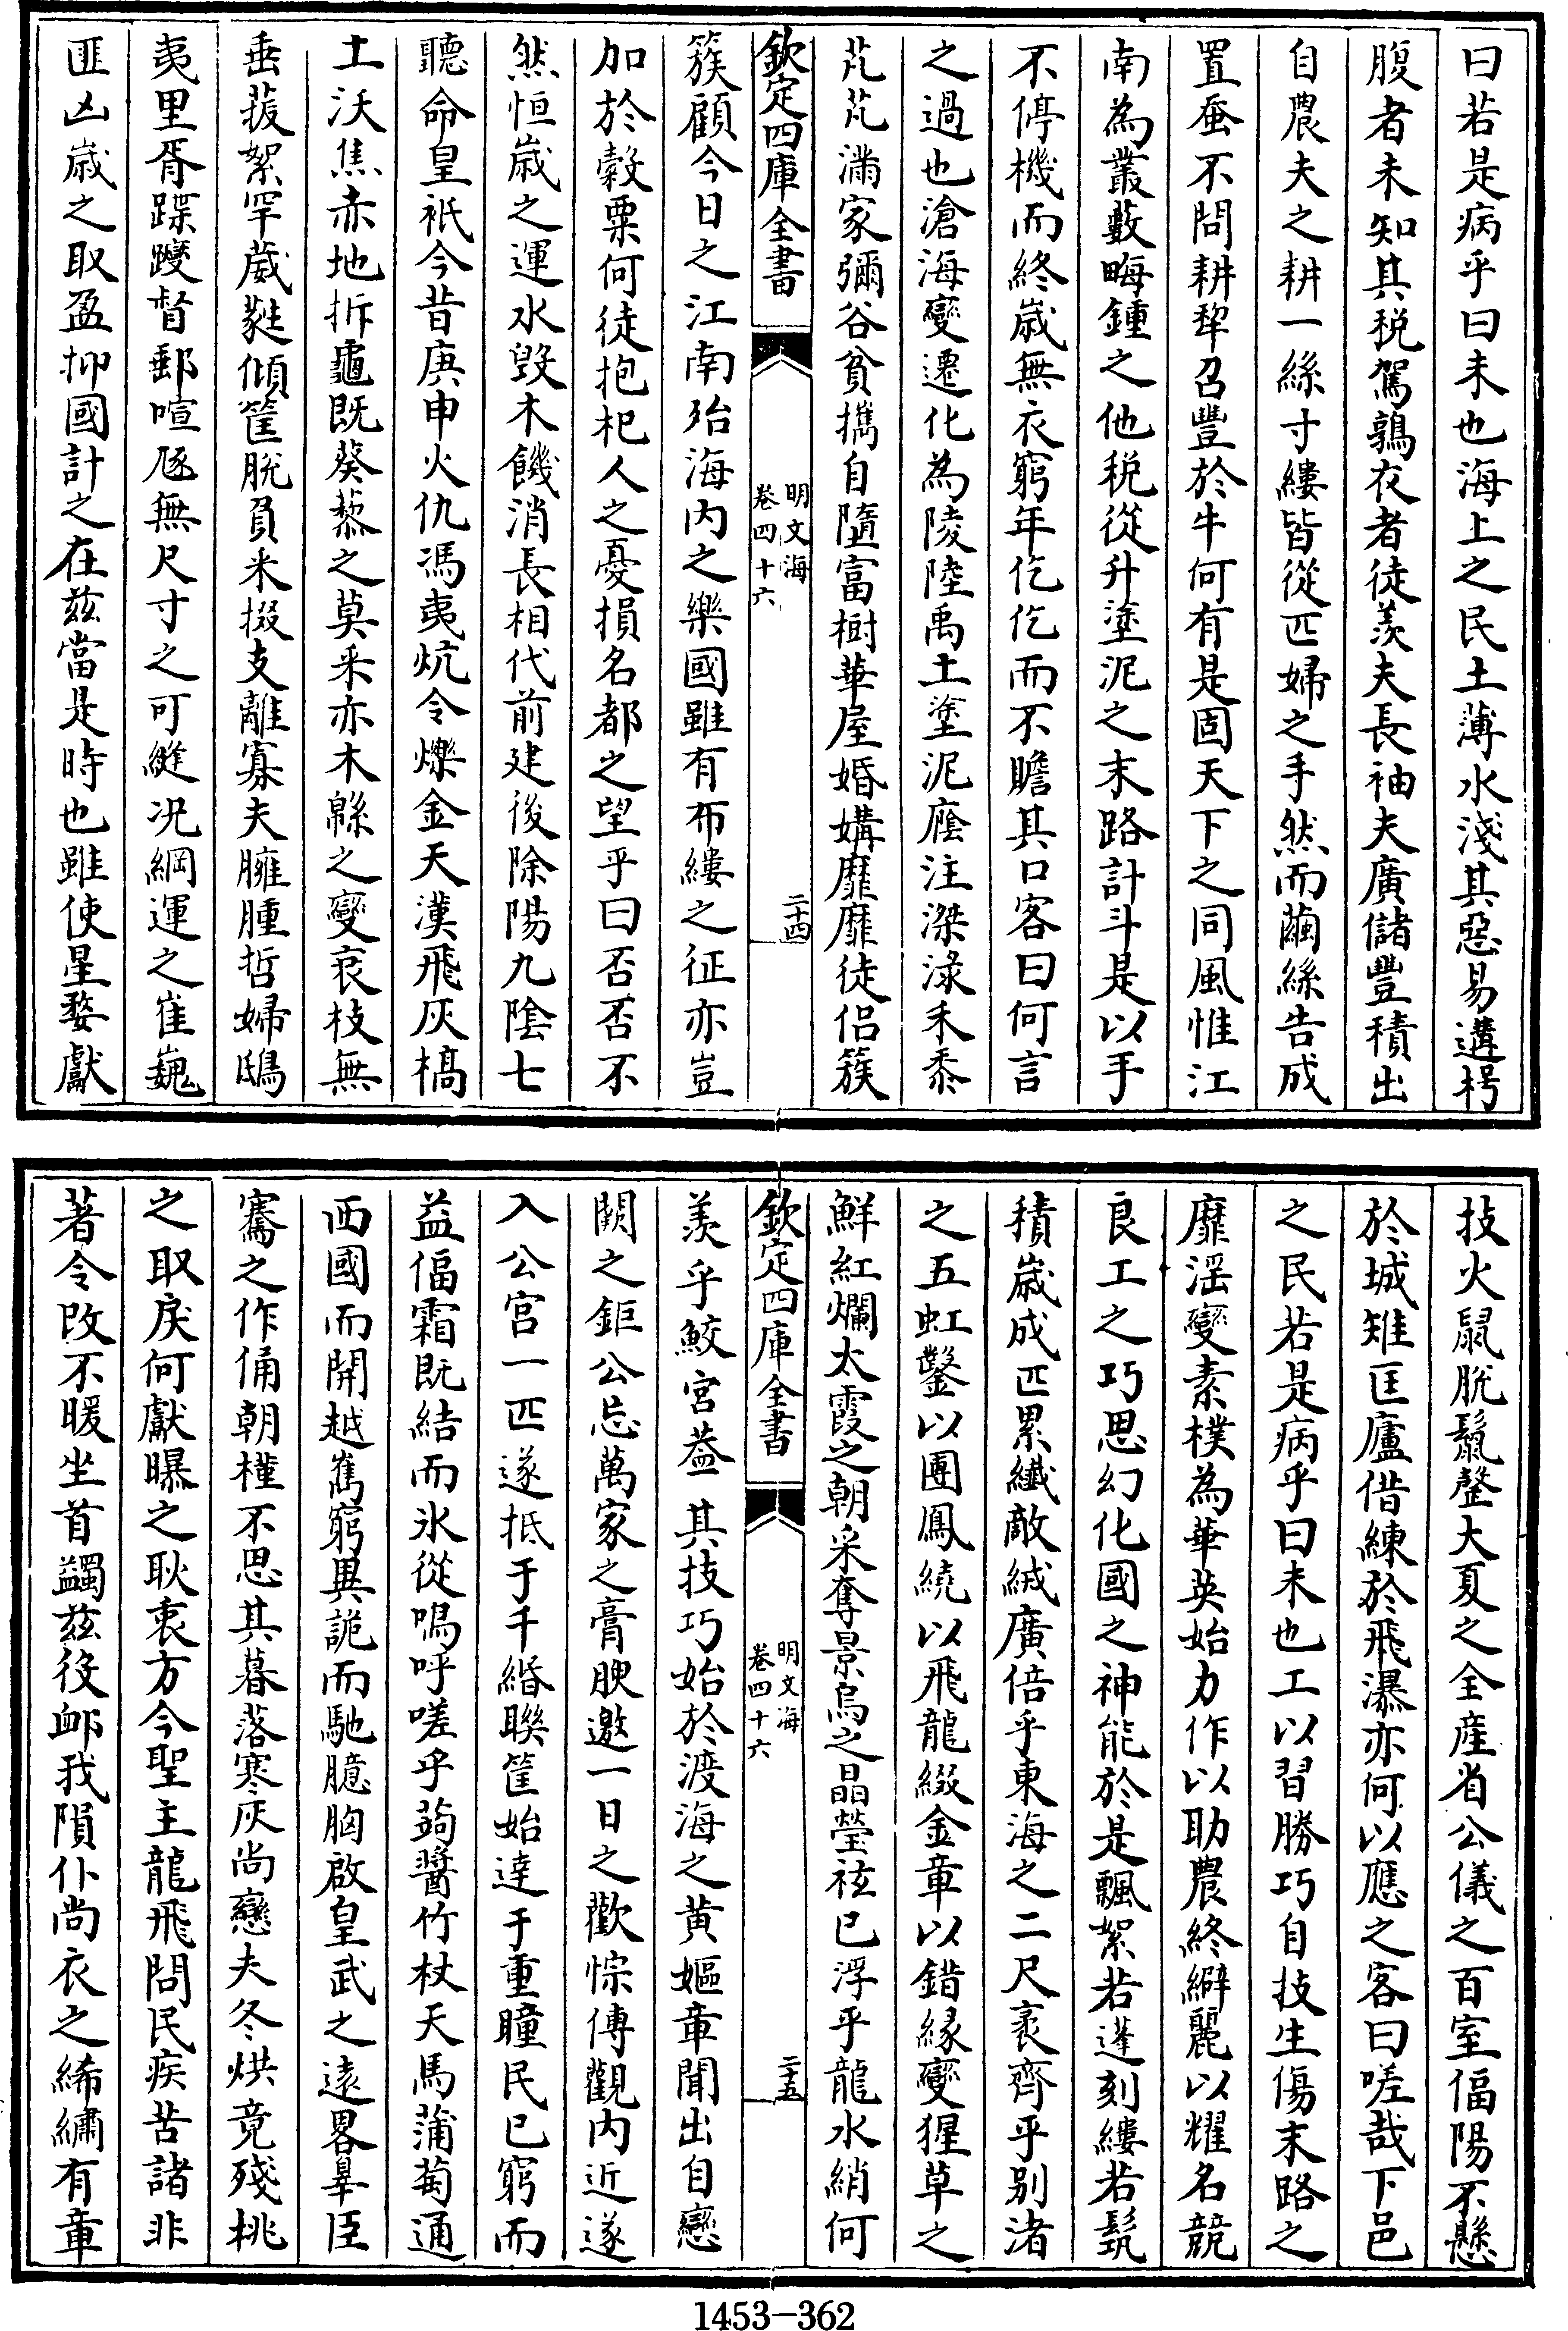 曰若是病乎曰未也海上之民土薄水淺其惡易遘枵
腹者未知其税駕鶉衣者徒羨夫長袖夫廣儲豐積出
自農夫之耕一絲寸縷皆從匹婦之手然而繭絲告成
置蚕不問耕犂召豐於牛何有是固天下之同風惟江
南為叢藪畮鍾之他税從升塗泥之末路計斗是以手
不停機而終嵗無衣窮年仡仡而不贍其口客曰何言
之過也滄海變遷化為陵陸禹土塗泥廕注滐淥禾黍
芃芃滿家彌谷貧擕自隨富樹華屋婚媾靡靡徒侣簇
欽定四庫全書
明文海
卷四十六
二十四
簇顧今日之江南殆海内之樂國雖有布縷之征亦豈
加於穀粟何徒抱杞人之憂損名都之望乎曰否否不
然恒嵗之運水毁木饑消長相代前建後除陽九陰七
聽命皇祇今昔庚申火仇馮夷炕令爍金天漢飛灰槁
土沃焦赤地拆龜既葵藜之莫采亦木緜之變衰枝無
垂菝絮罕葳蕤傾筐脱負釆掇支離寡夫臃腫哲婦鴟
夷里胥蹀躞督郵喧豗無尺寸之可縫况綱運之崔巍
匪凶嵗之取盈抑國計之在兹當是時也雖使星婺獻
技火鼠脱鬣罄大夏之全産省公儀之百室偪陽不懸
於城雉匡廬借練於飛瀑亦何以應之客曰嗟哉下邑
之民若是病乎曰未也工以習勝巧自技生傷末路之
靡滛變素樸為華英始力作以助農終緶麗以耀名競
良工之巧思幻化國之神能於是飄絮若蓬刻縷若髠
積嵗成匹累纎敵絨廣倍乎東海之二尺袤齊乎别渚
之五虹鑿以團鳳繞以飛龍綴金章以錯緣變猩草之
鮮紅爛太霞之朝采奪景烏之晶瑩祛已浮乎龍水綃何
欽定四庫全書
明文海
卷四十六
二十五
羨乎鮫宫葢其技巧始於渡海之黄嫗章聞出自戀
闕之鉅公忘萬家之膏腴邀一日之歡悰傳觀内近遂
入公宫一匹遂抵于千緡聯筐始逹于重瞳民已窮而
益偪霜既結而氷從嗚呼嗟乎蒟醬竹杖天馬蒲萄通
西國而開越嶲窮異詭而馳臆胸啟皇武之遠畧辠臣
騫之作俑朝槿不思其暮落寒灰尚戀夫冬烘竟殘桃
之取戾何獻曝之耿衷方今聖主龍飛問民疾苦諸非
著令改不暖坐首蠲兹役䘏我隕仆尚衣之絺繡有章
1453-362